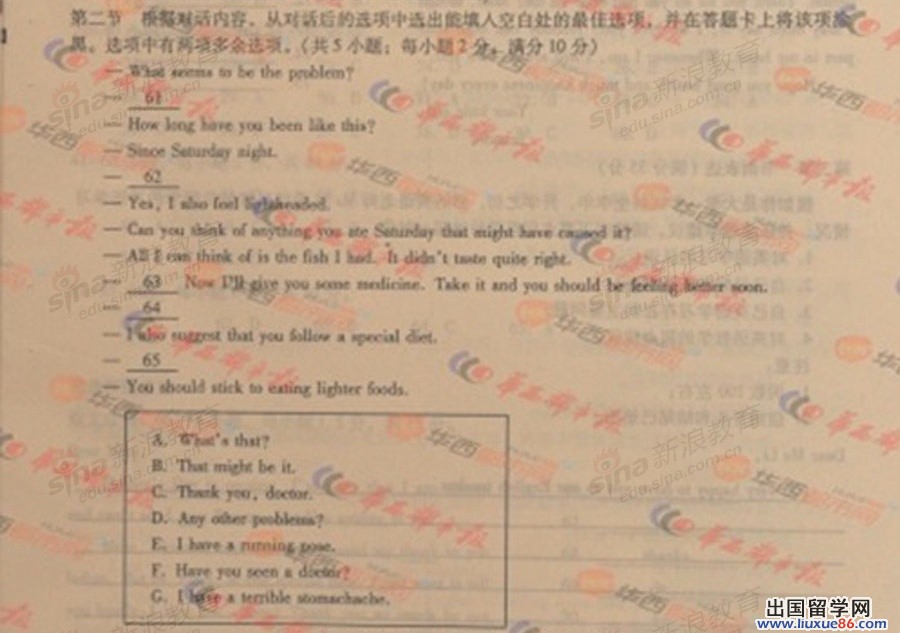 第二节 根据对话内容，从对话后的选项中选出能填入空白处的最佳选项，并在答题卡上将该项涂
黑。选项中有两项多余选项。（共5小题；每小题2分，满分10分）
— What seems to be the problem?
— 61
— How long have you been like this?
— Since Saturday night.
— 62
— Yes, I also feel lightheaded.
— Can you think of anything you ate Saturday that might have caused it?
— All I can think of is the fish I had. It didn't taste quite right.
— 63 Now I'll give you some medicine. Take it and you should be feeling better soon.
— 64
— I also suggest that you follow a special diet.
— 65
— You should stick to eating lighter foods.
A. What's that?
B. That might be it.
C. Thank you, doctor.
D. Any other problems?
E. I have a running nose.
F. Have you seen a doctor?
G. I have a terrible stomachache.
sina 新浪教育
edu.sina.com.cn
华西都市报
出国留学网
www.liuxue86.com